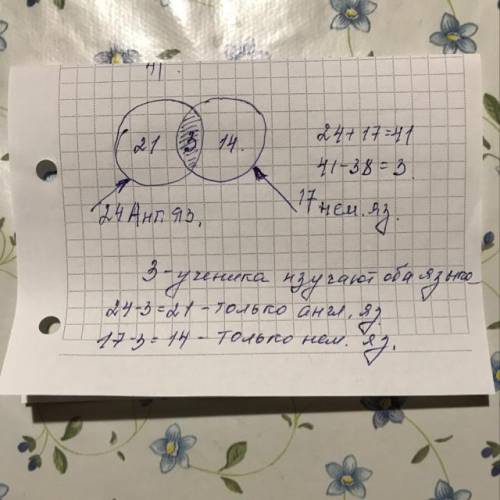 21 3 14.
24+17=41
41-38=3.
24 Анг. яз.
17 нем. яз.
3-ученика изучают оба языка
24-3=21-только англ. яз.
17-3=14-только нем. яз.